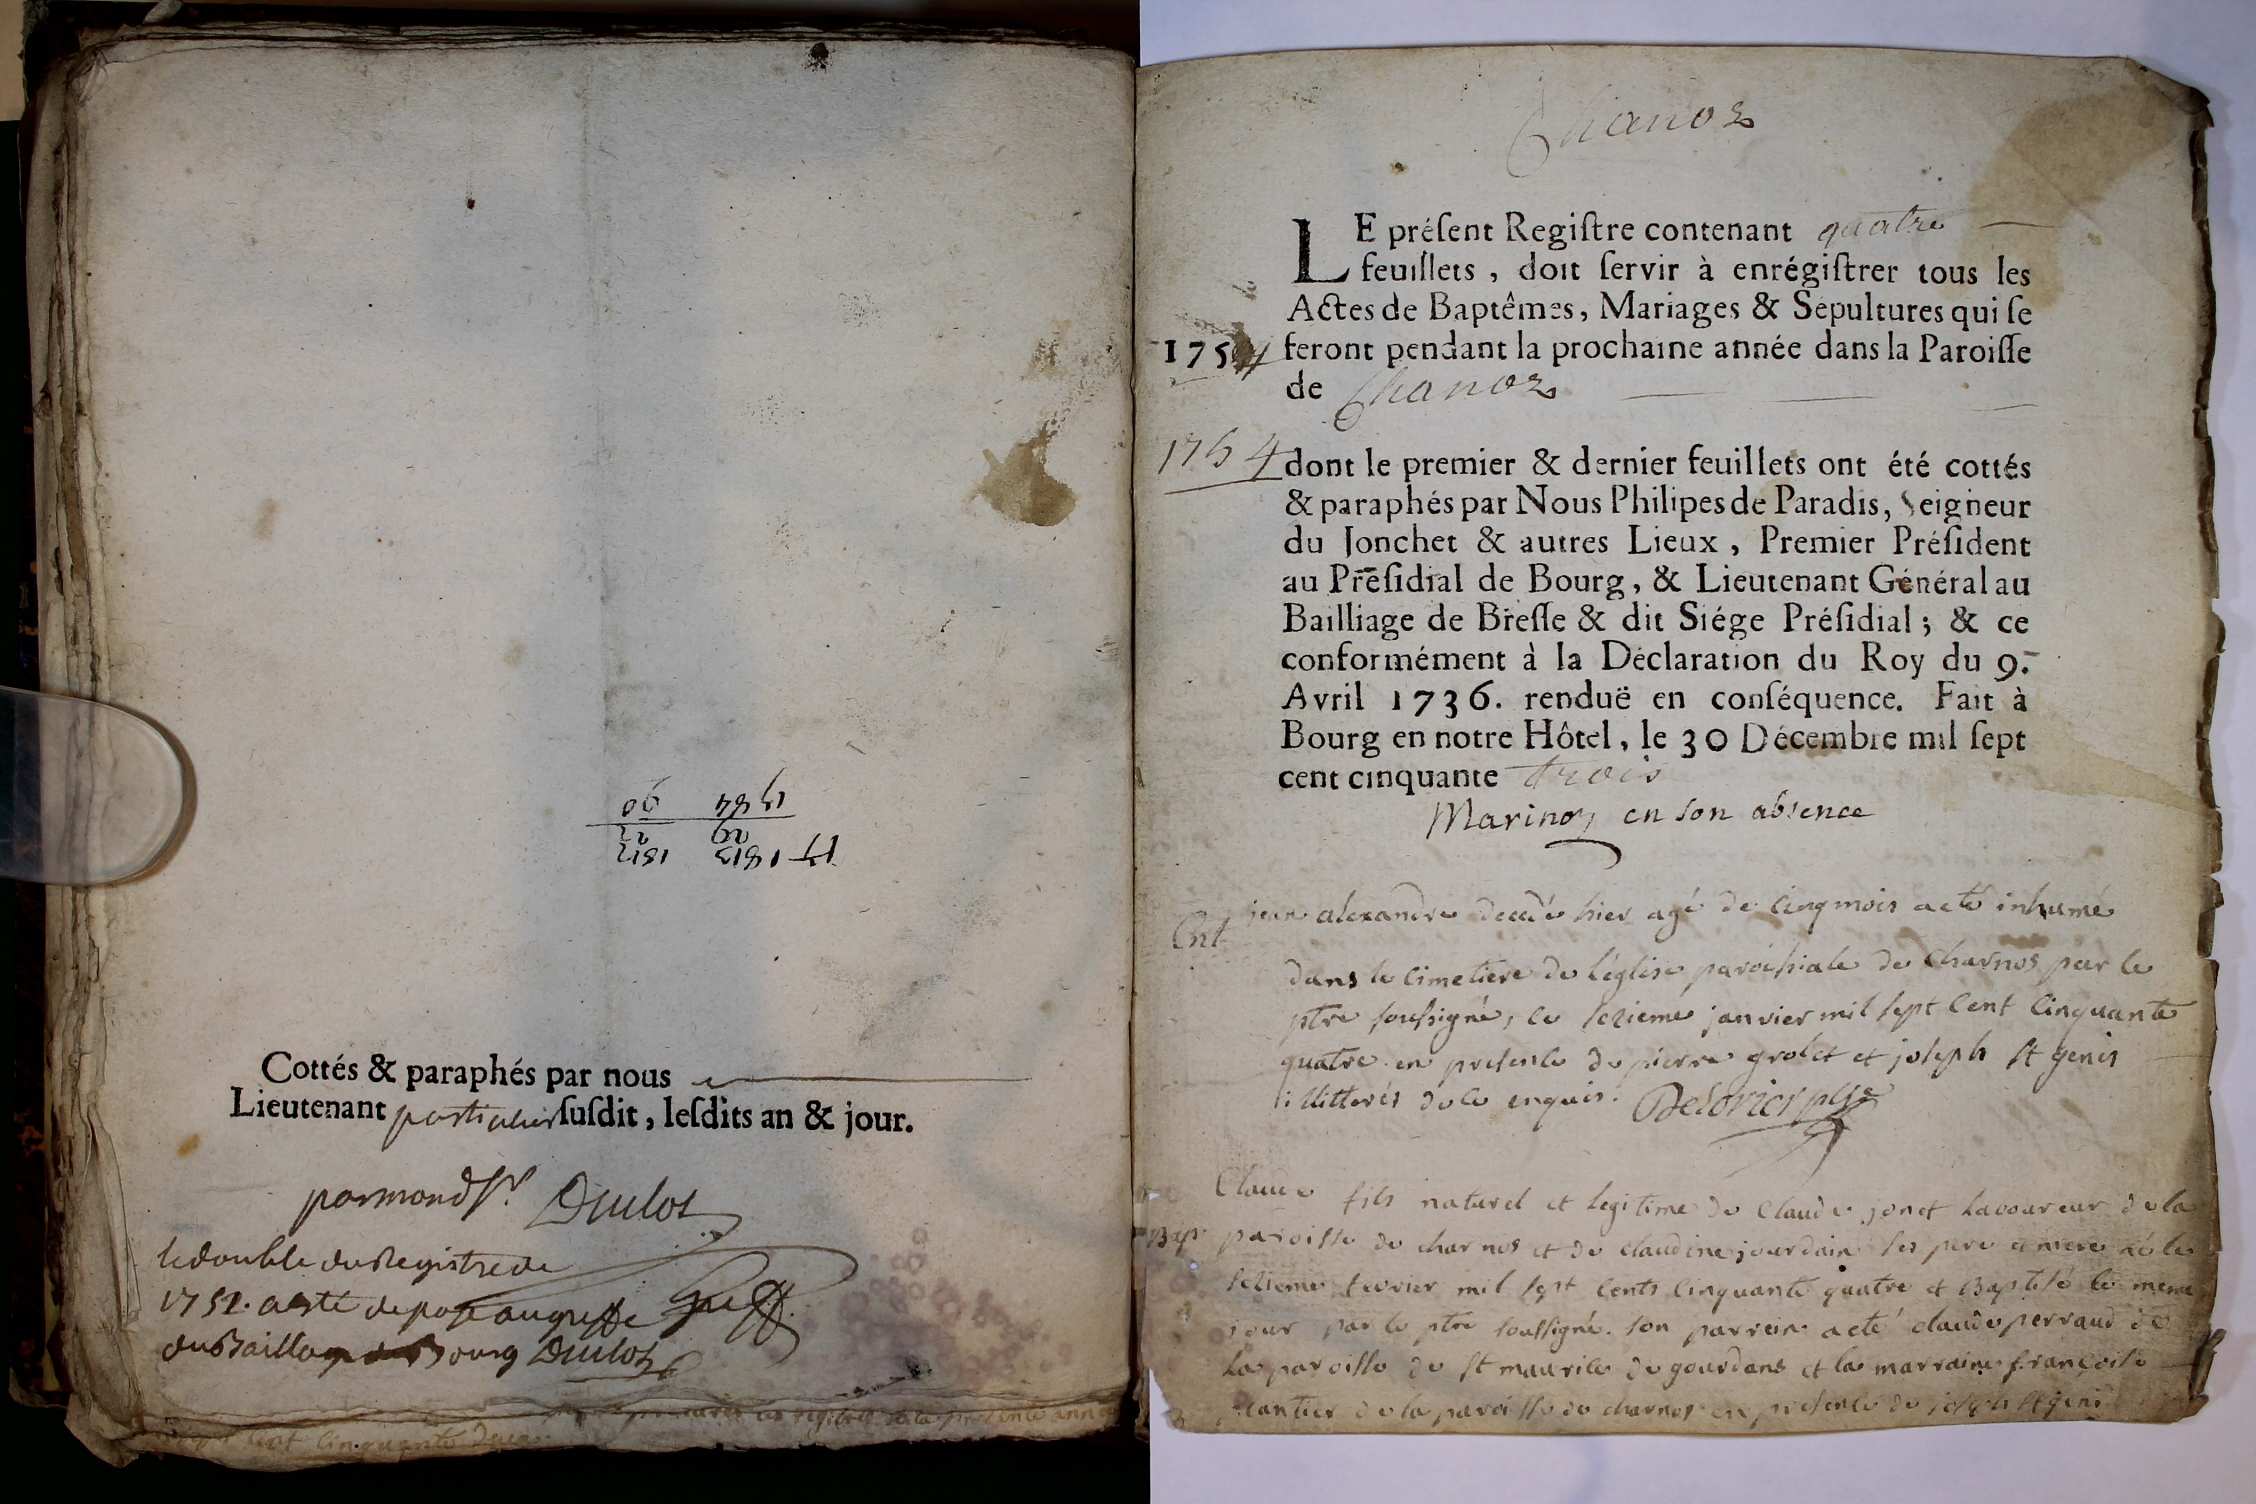 Cottés & paraphés par nous
Lieutenant particulier susdit, lesdits an & jour.
parmond Sr. Dulot
le double du Registre de
1752. a esté deposé au greffe
du Bailliage de Bourg Dulot
presente année
cent cinquante deux
Chanoz
LE présent Registre contenant quatre
feuillets, doit servir à enrégistrer tous les
Actes de Baptêmes, Mariages & Sépultures qui se
1754 feront pendant la prochaine année dans la Paroisse
de Chanoz
1754 dont le premier & dernier feuillets ont été cottés
& paraphés par Nous Philipes de Paradis, Seigneur
du Jonchet & autres Lieux, Premier Président
au Présidial de Bourg, & Lieutenant Général au
Bailliage de Bresse & dit Siége Présidial; & ce
conformément à la Déclaration du Roy du 9.
Avril 1736. renduë en conséquence. Fait à
Bourg en notre Hôtel, le 30 Décembre mil sept
cent cinquante trois
Marinoz en son absence
Ent jean alexandre decedé hier agé de cinq mois a eté inhumé
dans le cimetiere de l'église paroissiale de Charnos par le
ptre soussigné, ce sezieme janvier mil sept cent cinquante
quatre en presence de pierre grolet et joseph st genis
illitterés de ce enquis. Desorier ptre
Claude fils naturel et legitime de Claude jonet laboureur de la
Bap paroisse de charnos et de claudine jourdain ses pere et mere né le
sezieme fevrier mil sept cents cinquante quatre et Baptisé le meme
jour par le ptre soussigné. son parrein a eté claude perraud de
la paroisse de st maurice de gourdans et la marraine françoise
plantier de la paroisse de charnos en presence de joseph st genis